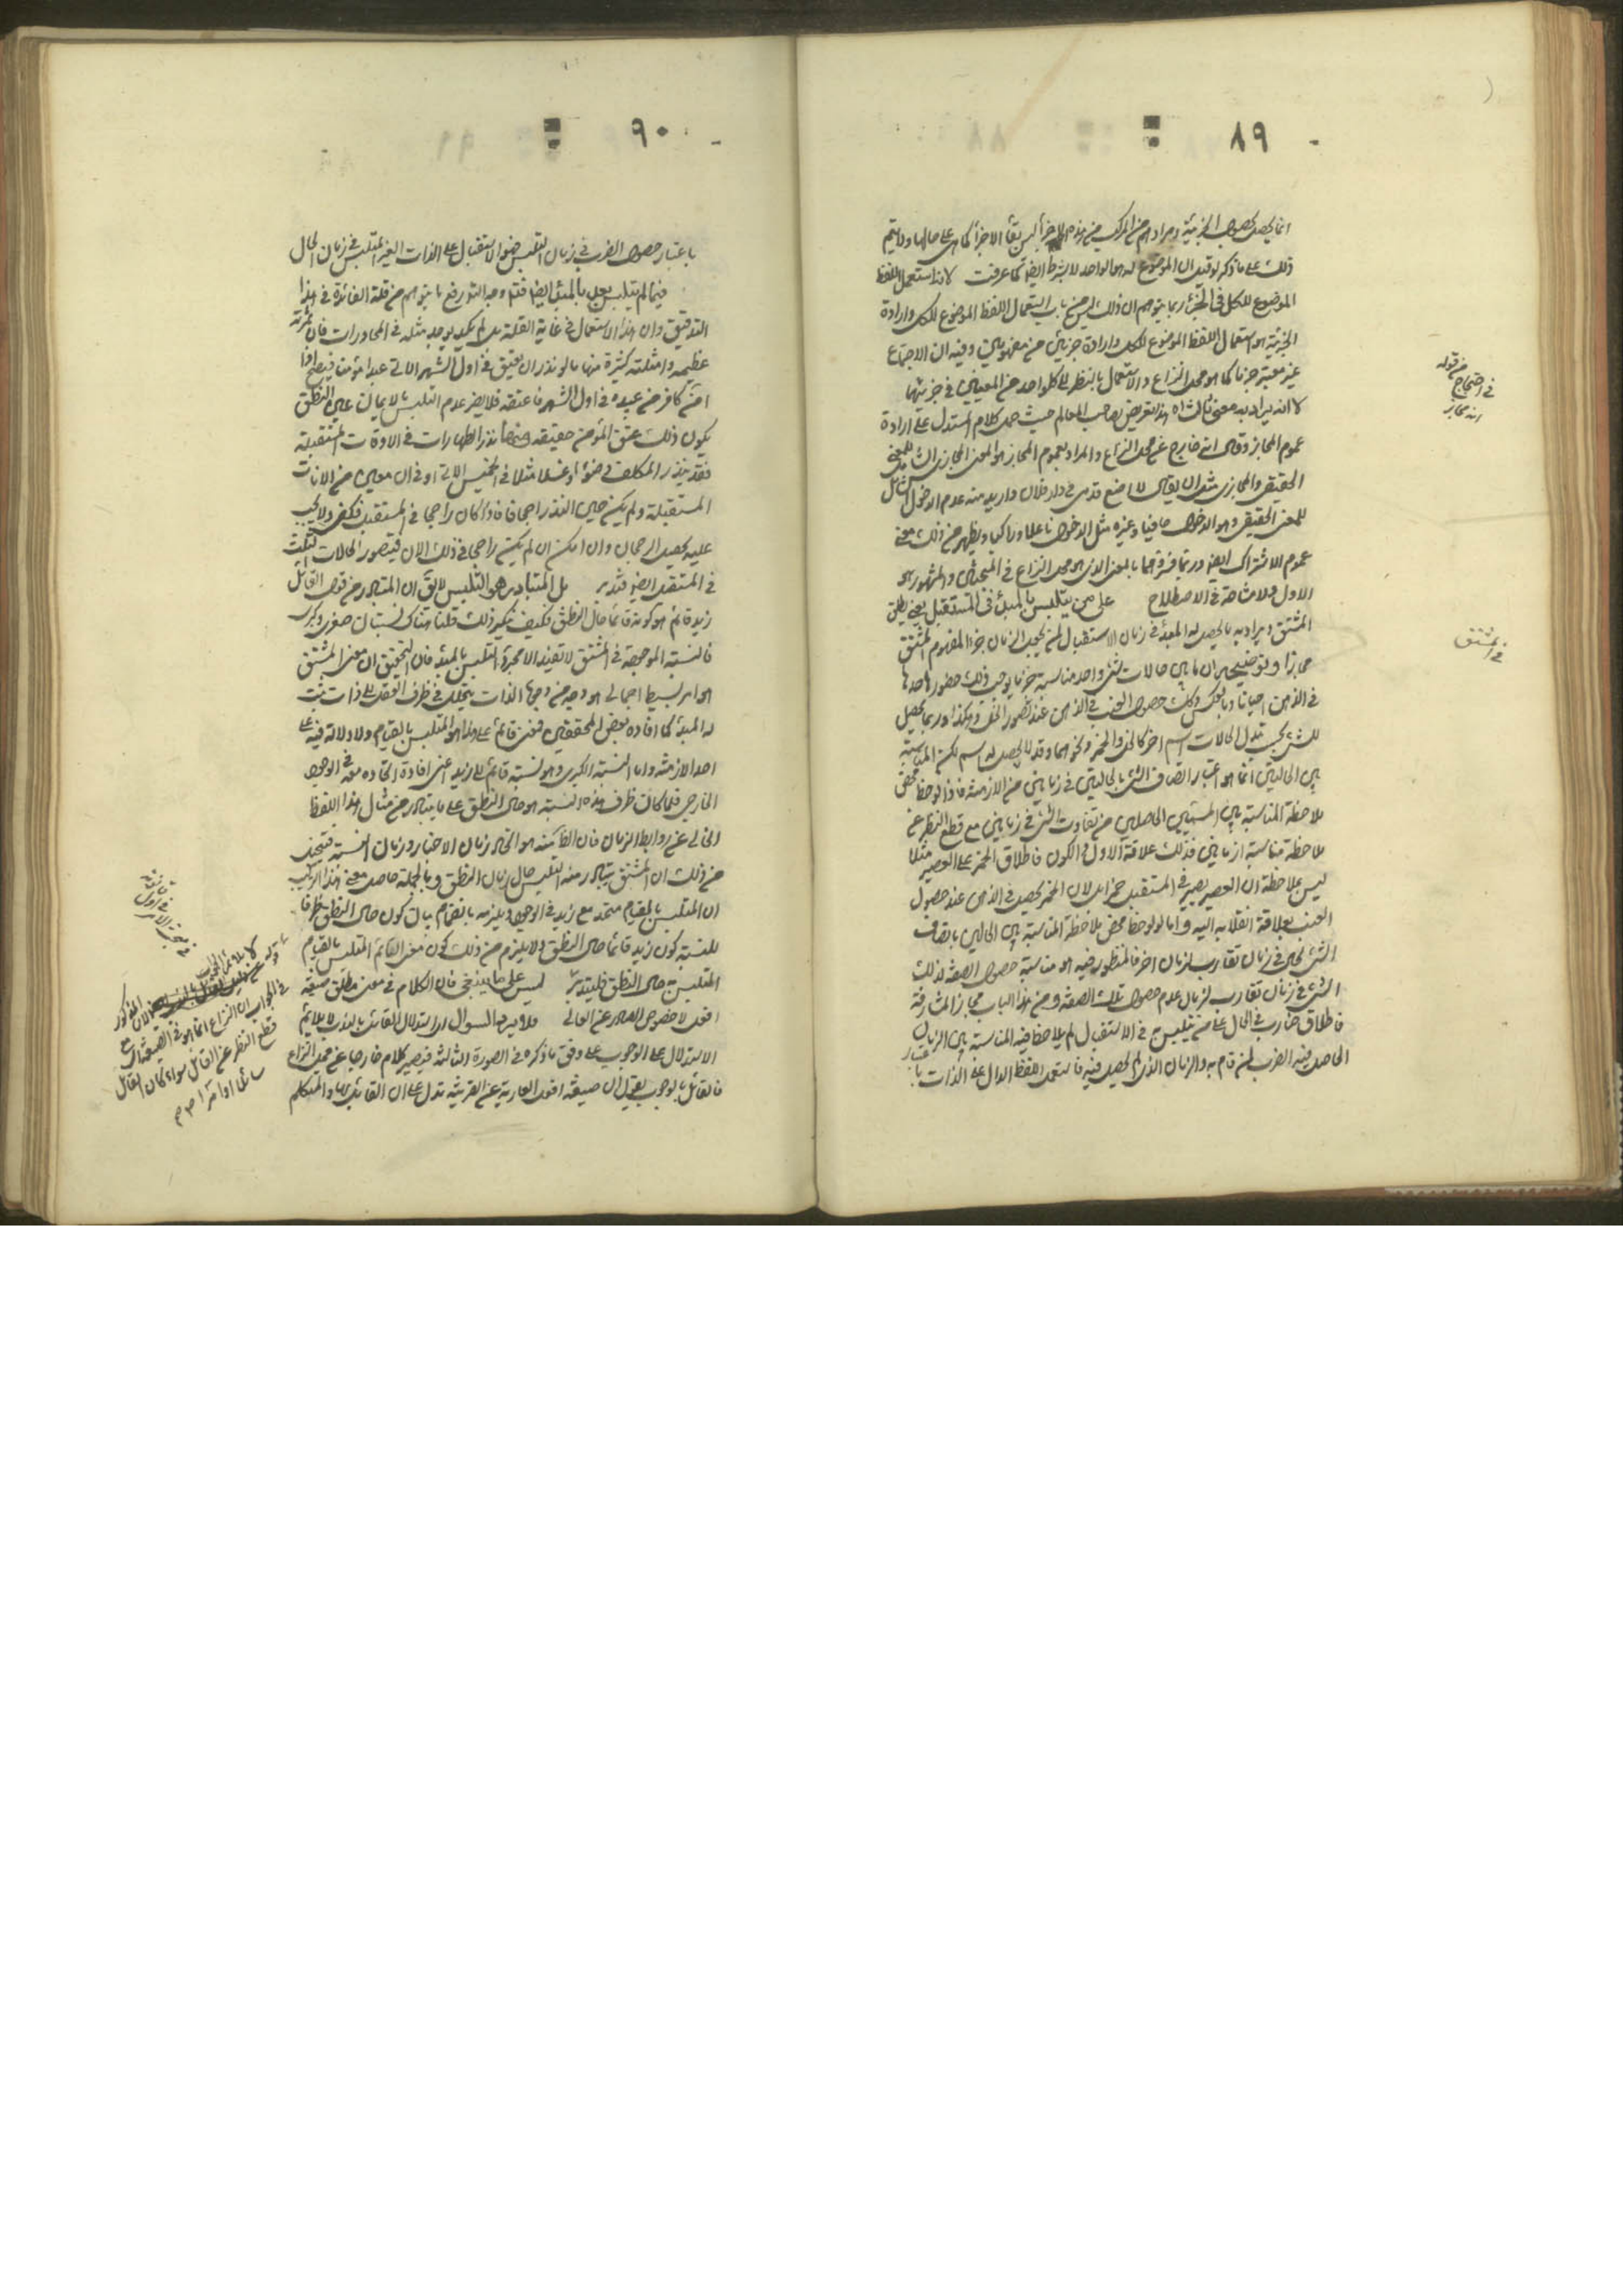 ٨٩
ذلك على ما ذكر لو قيل ان الموضوع له هو الواحد لا بشرط ايضا كما عرفت لانه استعمل اللفظ
الموضوع للكل في الجزء ربما يتوهم ان ذلك ليس من باب استعمال اللفظ الموضوع للكل وارادة
الجزئية هو استعمال اللفظ الموضوع للكل وارادة جزئين من مفهومين وفيه ان الاجتماع
غير معتبر جزما كما هو محل النزاع والاستعمال بالنظر الى كلواحد من المعنيين في جزئيتها
لا انه يراد به معنى ثالث اه هذا تعريض بصاحب المعالم حيث حمل كلام المستدل على ارادة
عموم المجاز وقال انه خارج عن محل النزاع والمراد بعموم المجاز هو المعنى المجازي الشامل للمعنى
الحقيقي والمجازي مثل ان يقال لا اضع قدمي في دار فلان واريد منه عدم الدخول الشامل
للمعنى الحقيقي وهو الدخول حافيا وغيره مثل الدخول ناعلا وراكبا ويظهر من ذلك معنى
عموم الاشتراك ايضا وربما فرق هما بالمعنى الذي هو محل النزاع في المبحثين والمشهور هو
الاول ولا مشاحة في الاصطلاح على من يتلبس بالمبدء في المستقبل يعني يطلق
المشتق ويراد به ما يحصل له المبدء في زمان الاستقبال لم يجعل الزمان جزء المفهوم المشتق
مجازا وتوضيحه ان ما بين حالات شئ واحد مناسبة جزما يوجب ذلك حضور احدها
في الذهن احيانا وبالعكس وكك حصول العنب في الذهن عند تصور الخل وهكذا وربما يحصل
للشئ بحسب تبدل الحالات اسم اخر كالخل والخمر ونحوهما وقد لا يحصل له اسم لكن المناسبة
بين الحالتين انما هو اعتبار اتصاف الشئ بالحالتين في زمانين من الازمنة فاذا لوحظ محض
ملاحظة المناسبة بين الشيئين الحاصلين من تفاوت الشئ في زمانين مع قطع النظر عن
ملاحظة مناسبة الزمانين فذلك علاقة الاول والكون فاطلاق الخمر على العصير مثلا
ليس بملاحظة ان العصير يصير في المستقبل خمرا بل لان الخمر يحصل في الذهن عند حصول
العنب بعلاقة انقلابه اليه واما لو لوحظ محض ملاحظة المناسبة بين الحالين باتصاف
الشئ بحال في زمان تقارب لزمان اخر فالمنظور فيه هو مناسبة حصول الصفة لذلك
الشئ في زمان تقارب لزمان عدم حصول تلك الصفة ومن هذا الباب مجاز المشارفة
فاطلاق ضارب في الحال على من يتلبس به في الاستقبال لم يلاحظ فيه المناسبة بين الزمان
الحاصل فيه الضرب لمن قام به والزمان الذي لم يحصل فيه فاستعمل اللفظ الدال على الذات باعتبار
من قوله
في احتجاج
انه مجاز
في المشتق
٩٠
باعتبار حصول الضرب في زمان التلبس في الاستقبال على الذات الغير المتلبس في زمان الحال
فيما لم يتلبس بعد بالمبدء ايضا
التدقيق وان هذا الاستعمال في غاية القلة بل لم يكد يوجد مثله في المحاورات فان ثمرته
عظيمة وامثلته كثيرة منها ما لو نذر ان يعتق في اول الشهر الاتي عبدا مؤمنا فيصح اذا
امن كافر من عبيده في اول الشهر فاعتقه فلا يضر عدم التلبس بالايمان حين النطق
بكون ذلك عتق المؤمن حقيقة ومنها نذر الطهارات في الاوقات المستقبلة
فقد ينذر المكلف وضوء او غسلا مثلا في الخميس الاتي او في ان معين من الانات
المستقبلة ولم يكن حين النذر راجحا فاذا كان راجحا في المستقبل فكفى ولا يجب
عليه تحصيل الرجحان وان امكن ان لم يكن راجحا في ذلك الان فيتصور الحالات الثلث
في المستقبل ايضا فتدبر بل المتبادر هو التلبس لا يق ان المتبادر من قول القائل
زيد قائم هو كونه قائما حال النطق فكيف ينكر ذلك قلنا هناك نسبتان صغرى وكبرى
فالنسبة الموجودة في المشتق لا تفيد الا مجرد التلبس بالمبدء فان التحقيق ان معنى المشتق
هو امر بسيط اجمالي هو وجه من وجوه الذات يتحلل في ظرف العقل الى ذات ثبت
له المبدء كما افاده بعض المحققين فمعنى قائم على هذا هو المتلبس بالقيام ولا دلالة فيه على
احد الازمنة واما النسبة الكبرى وهو نسبة قائم الى زيد اعني افادة اتحاده معه في الوجود
الخارجي فلما كان ظرف هذه النسبة هو حال النطق على ما يتبادر من امثال هذا اللفظ
الخالي عن روابط الزمان فان الظاهر منه هو اتحاد زمان الاخبار وزمان النسبة فتخيل
من ذلك ان المشتق يتبادر منه التلبس حال زمان النطق وبالجملة حاصل معنى هذا التركيب
ان المتلبس بالقيام متحد مع زيد في الوجود ويلزمه بانضمام بيان كون حال النطق ظرفا
للنسبة كون زيد قائما حال النطق ولا يلزم من ذلك كون معنى القائم المتلبس بالقيام
المتلبس به حال النطق فليتدبر ليس على ما ينبغي فان الكلام في معنى مطلق صيغة
افعل لا خصوص الصادر عن العالي ولا ويرد السؤال اه استدلال القائل بالندب لا يلائم
الاستدلال على الوجوب على وفق ما ذكره في الصورة الثالثة فيصير كلام خارجا عن محل النزاع
فالقائل بالوجوب يقول ان صيغة افعل العارية عن القرينة تدل على ان القائل بها والمتكلم
قانون
في اوائل
مبحث الامر
في الجواب ان النزاع انما هو في الصيغة مع
قطع النظر عن القائل سواء كان القائل
سائلا او امرا